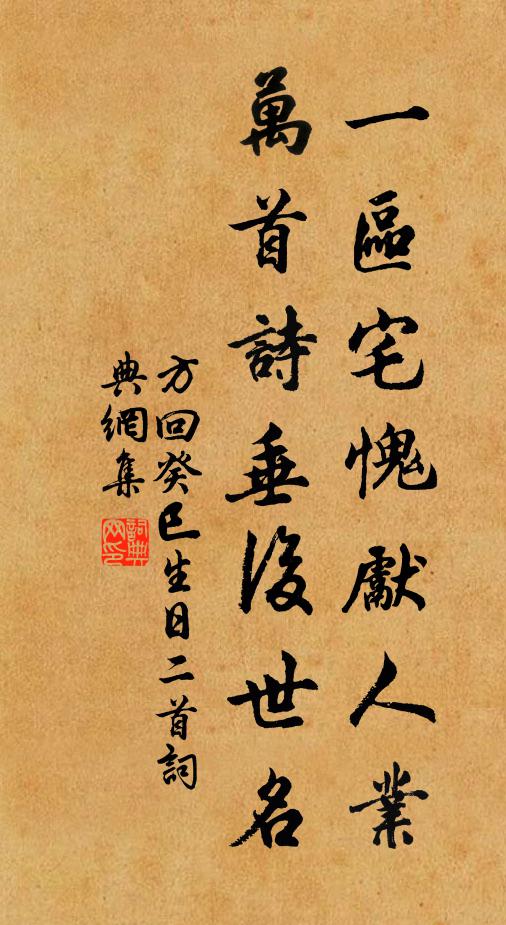 一區宅愧獻人業
萬首詩垂後世名
方回癸巳生日二首詞
典網集
詞典網印